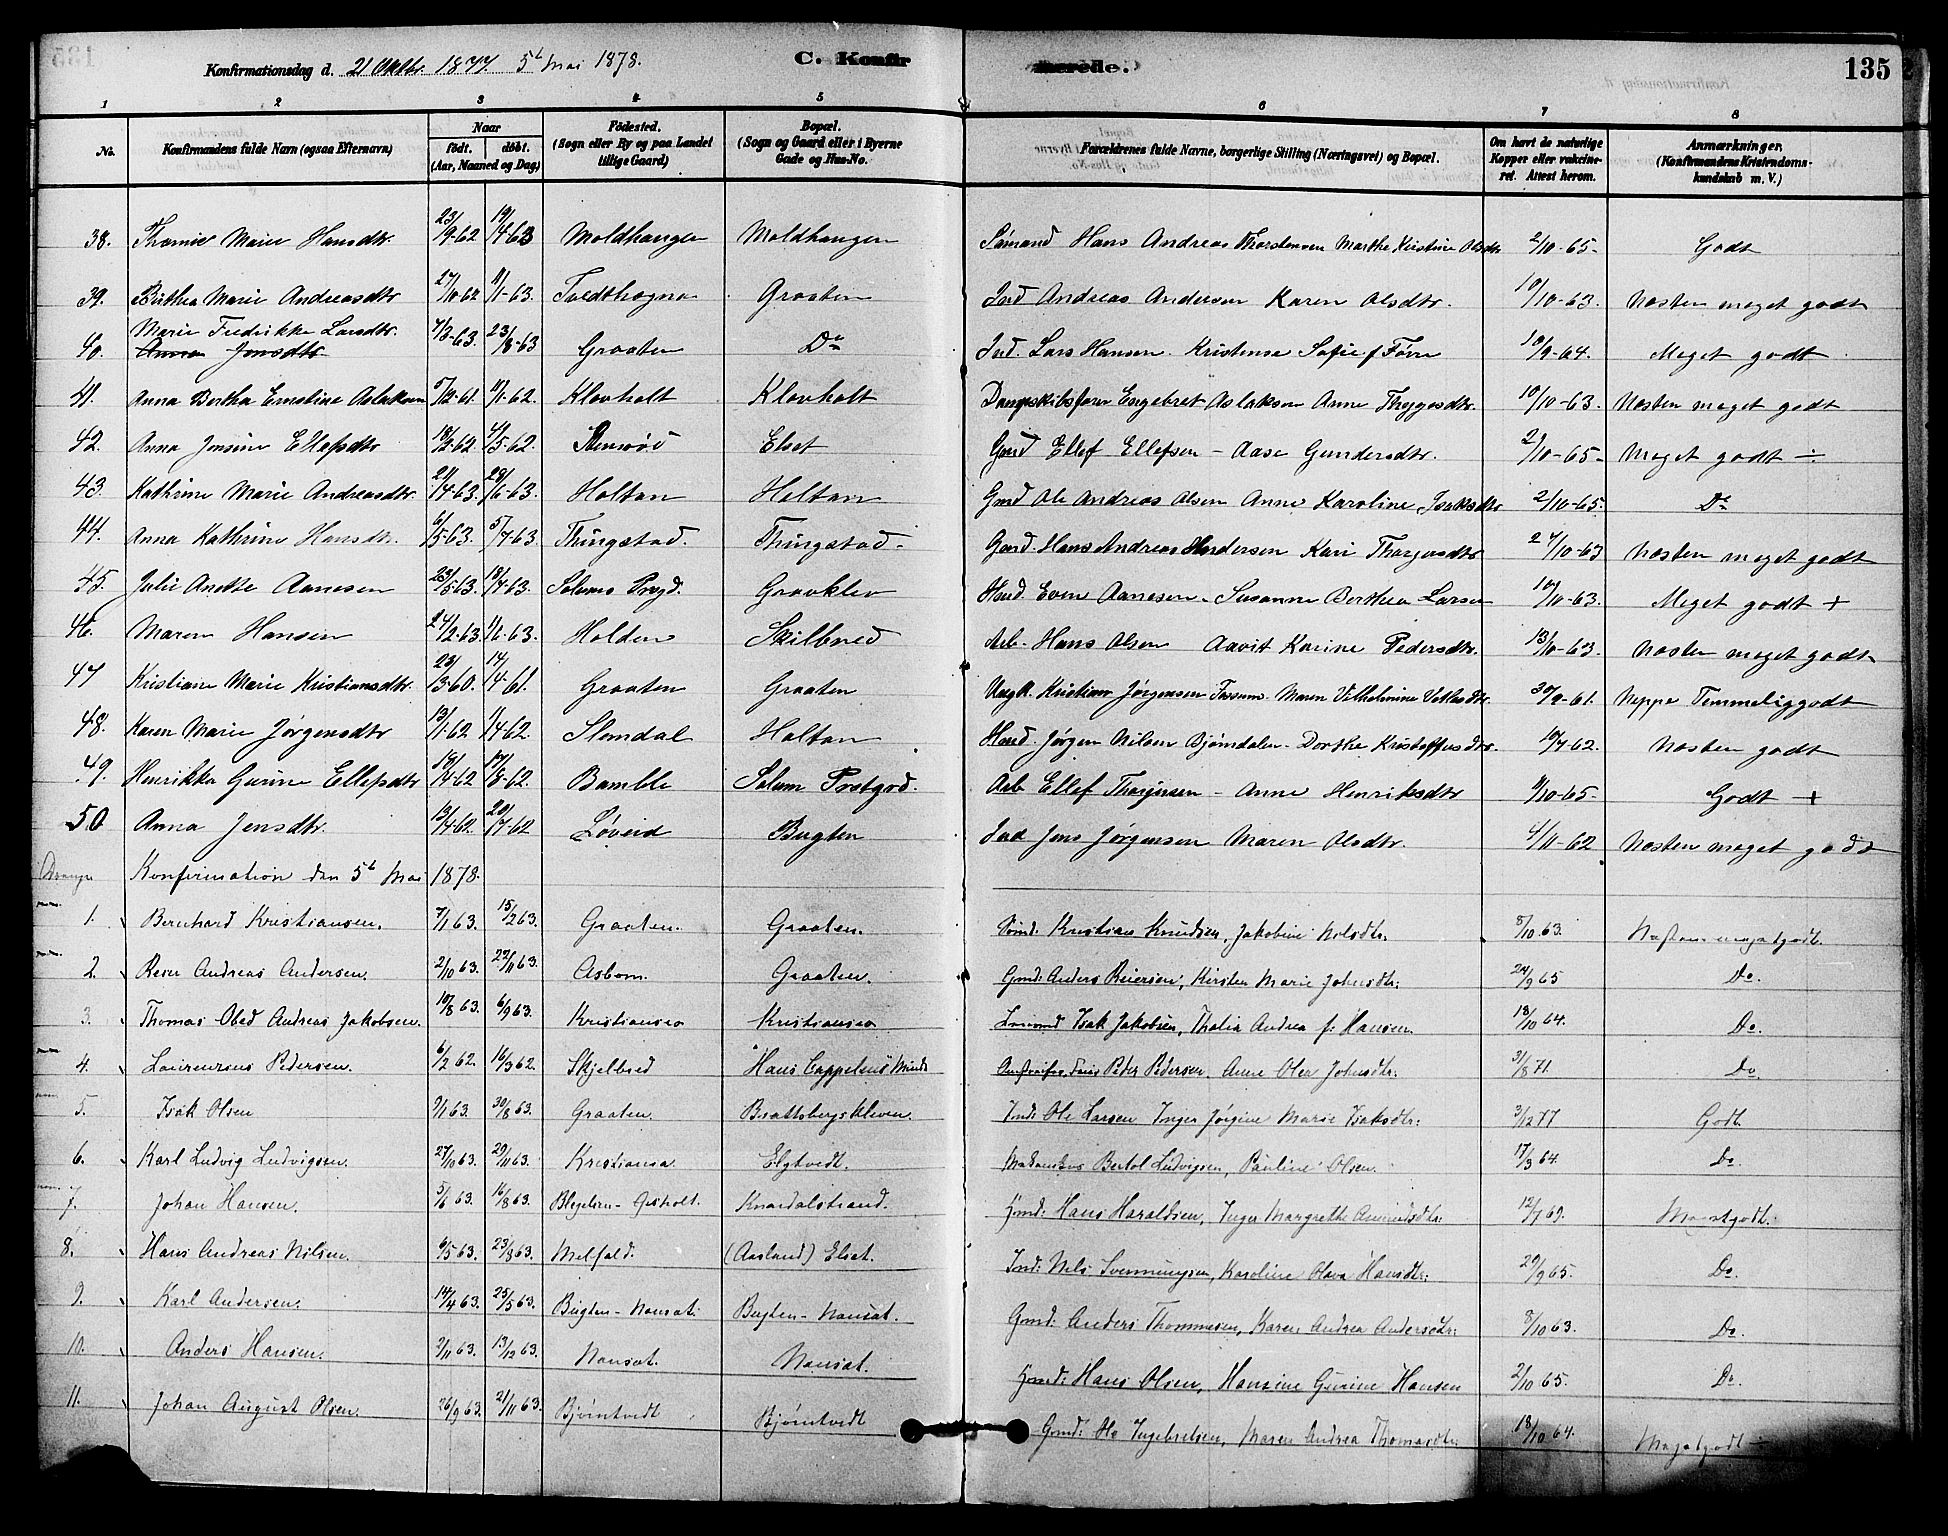 Konfirmationsdag d. 21 Oktbr. 1877 5t Mai 1878. C. Konfirmerede. 135
1 2 3 4 5 6 7 8
No. Konfirmandens fulde Navn (ogsaa Efternavn) Naar födt. döbt. (Aar, Maaned og Dag) Födested. (Sogn eller By og paa Landet tillige Gaard) Bopæl. (Sogn og Gaard eller i Byerne Gade og Hus-No. Forældrenes fulde Navne, borgerlige Stilling (Næringsvei) og Bopæl. Om havt de naturlige Kopper eller vakcineret. Attest herom. Anmærkninger, (Konfirmandens Kristendomskundskab m. V.)
38. Thomine Marie Hansdtr. 23/9-62 19/4-63 Moldhaugen Moldhaugen Sømand Hans Andreas Thorstensen Marthe Kristine Olsdtr 2/10-65- Godt
39. Birthea Marie Andreasdtr 27/10-62 11/1-63. Tvedthogna Graaten Ind Andreas Andersen Karen Olsdtr. 10/10-63. Næsten meget godt
40. Marie Fredrikke Larsdtr. Anna Jensdtr 7/3-63. 23/8-63 Graaten Do Ind. Lars Hansen. Kristense Sofie f Føvn 10/9-64. Meget godt
41. Anna Bertha Ernstine Aslaksen 5/12-61. 11/1-62. Klovholt Klovholt Dampskibsfører Engebret Aslaksen Anne Thygesdtr. 10/10-63. Næsten meget godt
42. Anna Jensine Ellefsdtr 18/2-62 4/5-62. Stenrød Elset Gaard Ellef Ellefsen - Aase Gundersdtr. 2/10-65- Meget godt ÷
43. Kathrine Marie Andreasdtr. 21/4-63. 28/6-63. Holtan Holtan Gmd Ole Andreas Olsen Anne Karoline Isaksdtr 2/10-65. Do
44. Anna Kathrine Hansdtr. 6/5-63. 5/7-63. Thringstad. Thringstad. Gaard. Hans Andreas Andersen Kari Thorjersdtr 27/10-63 Næsten meget godt
45. Julie Andtte Aanesen 23/5-63. 18/7-63. Solums Prgd. Graaklev Husd. Even Aanesen - Susanne Berthea Larsen 10/10-63. Meget godt +
46. Maren Hansen 24/2-63. 1/6-63. Holden Skilbred Arb. Hans Olsen Aavit Karine Pedersdtr. 13/10-63. Næsten meget godt
47 Kristiane Marie Kristiansdtr. 23/3-60. 14/4-61. Graaten Graaten Kristian Jørgensen Maren Vilhelmine 30/9-61. Neppe Temmeliggodt
48. Karen Marie Jørgensdtr 13/1-62 1/4-62. Slemdal Holtan Husd. Jørgen Nilsen Bjørndalen - Dorthe Kristoffersdtr. 10/7-62. Næsten godt
49. Henrikka Gurine Ellefsdtr 19/4-62 17/8-62. Bamble Solum Prstgrd. Arb Ellef Thorjersen - Anne Henriksdtr 9/10-65. Godt +
50 Anna Jensdtr. 13/4-62. 20/7-62 Løveid Bugten Ind Jens Jørgensen Maren Olsdtr. 4/11-62 Næsten meget godt
Konfirmation den 5t Mai 1878.
1. Bernhard Kristiansen. 7/1 63. 15/2 63. Graaten. Graaten. Sømd. Kristian Knudsen, Jakobine Nilsdtr. 8/10 63. Næsten megetgodt.
2. Reier Andreas Andersen. 2/10 63. 22/11 63. Aasbom. Graaten. Gmd. Anders Reiersen, Kirsten Marie Johnsdtr: 24/9 65 Do.
3. Thomas Obed Andreas Jakobsen. 10/8 63. 6/9 63. Kristianso Kristianso Isak Jakobsen, Thalia Andrea f: Hansen. 18/10 64. Do
4. Laurenzius Pedersen. 6/2 62. 16/3 62. Skjelbred Hans Cappelens Minde Peder Pedersen. Anne Olea Johnsdtr: 31/8 71. Do
5. Isak Olsen 9/1 63. 30/8 63. Graaten. Brattsbergskleven. Ind: Ole Larsen Inger Jørgine Marie Isaksdtr: 3/12 77 Godt.
6. Karl Ludvig Ludvigsen. 27/10 63. 29/11 63. Kristiania. Elgtvedt. Bertol Ludvigsen, Pauline Olsen. 17/3 64. Do.
7. Johan Hansen. 5/6 63. 16/8 63. Gisholt. Knardalstrand. Gmd: Hans Haraldsen, Inger Margrethe Amundsdtr: 12/7 69. Megetgodt.
8. Hans Andreas Nilsen. 6/5 63. 23/8 63. Melfald. (Aasland) Elset. Ind: Nils Svennungsen, Karoline Olava Hansdtr: 29/9 65. Do.
9. Karl Andersen. 14/4 63. 25/5 63. Bugten-Nanset. Bugten-Nanset. Gmd: Anders Thommesen, Karen Andrea Andersdtr: 8/10 63. Do.
10. Anders Hansen. 2/11 63. 13/12 63. Nanset. Nanset. Gmd: Hans Olsen, Hansine Gurine Hansen 2/10 65. Do.
11. Johan August Olsen. 26/9 63. 21/11 63. Bjørntvedt Bjørntvedt Gmd: Ole Ingebretsen, Maren Andrea Thomasdtr. 18/10 64. Megetgodt